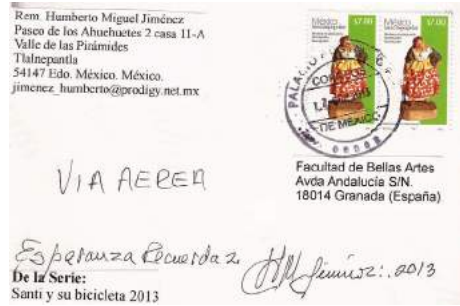 Rem. Humberto Miguel Jiménez
Paseo de los Ahuehuetes 2 casa 11-A
Valle de las Pirámides
Tlalnepantla
54147 Edo. México. México.
jimenez_humberto@prodigy.net.mx
México $7.00
México $7.00
PALACIO
CORREOS
DE MEXICO
VIA AEREA
Facultad de Bellas Artes
Avda Andalucía S/N.
18014 Granada (España)
Esperanza Recuerda 2
HM Jiménez:.2013
De la Serie:
Santi y su bicicleta 2013